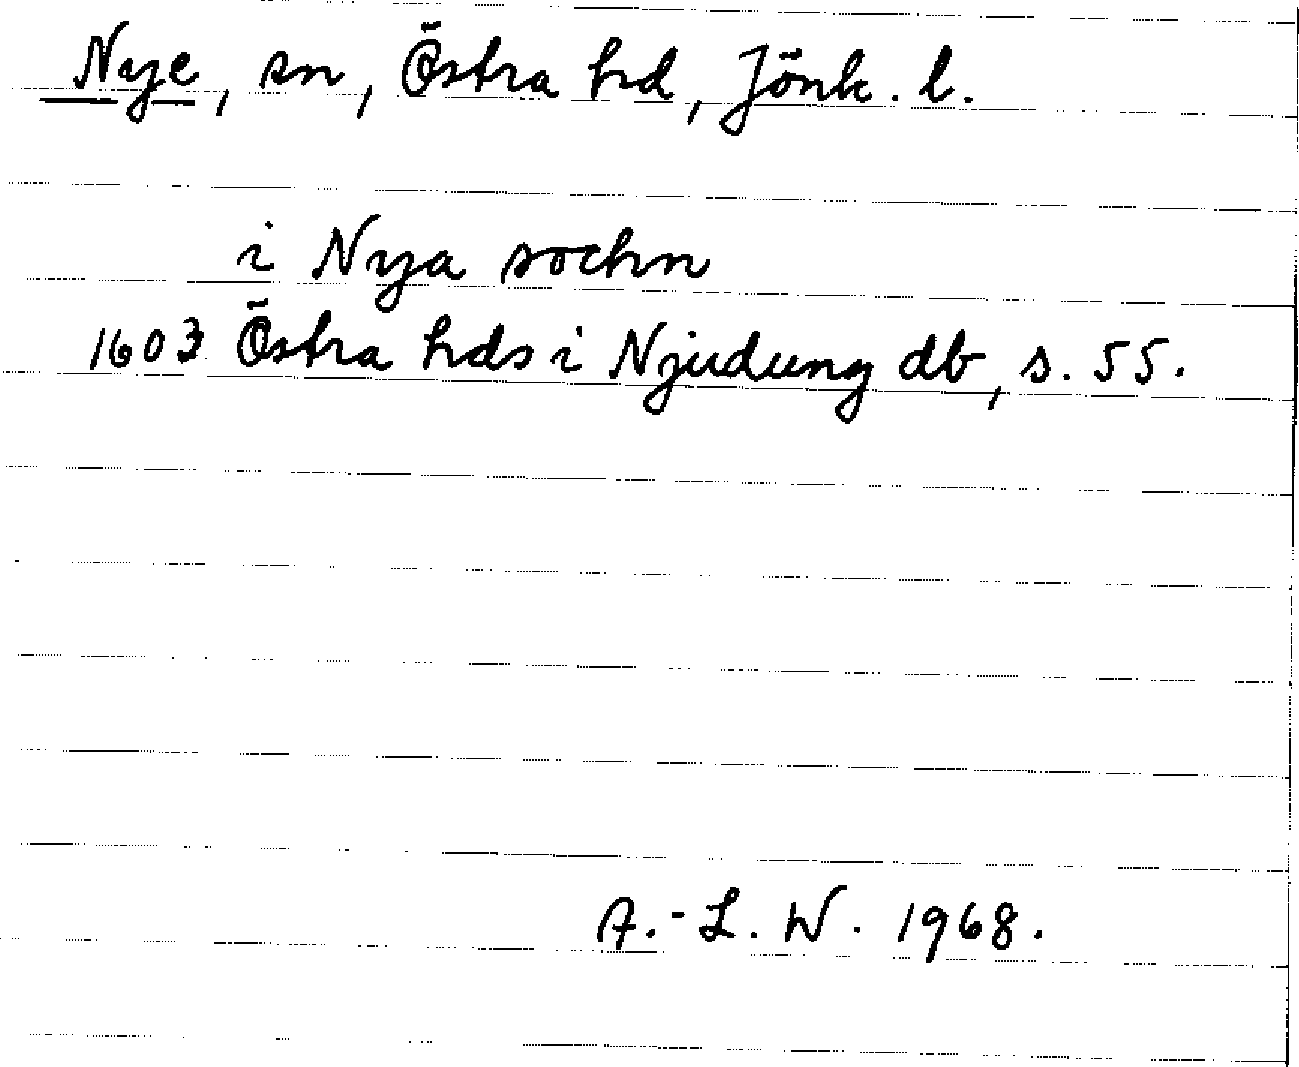 Nye, sn, Östra hd, Jönk. l.
i Nya sochn
1603 Östra hds i Njudung db, s. 55.
A.-L. W. 1968.